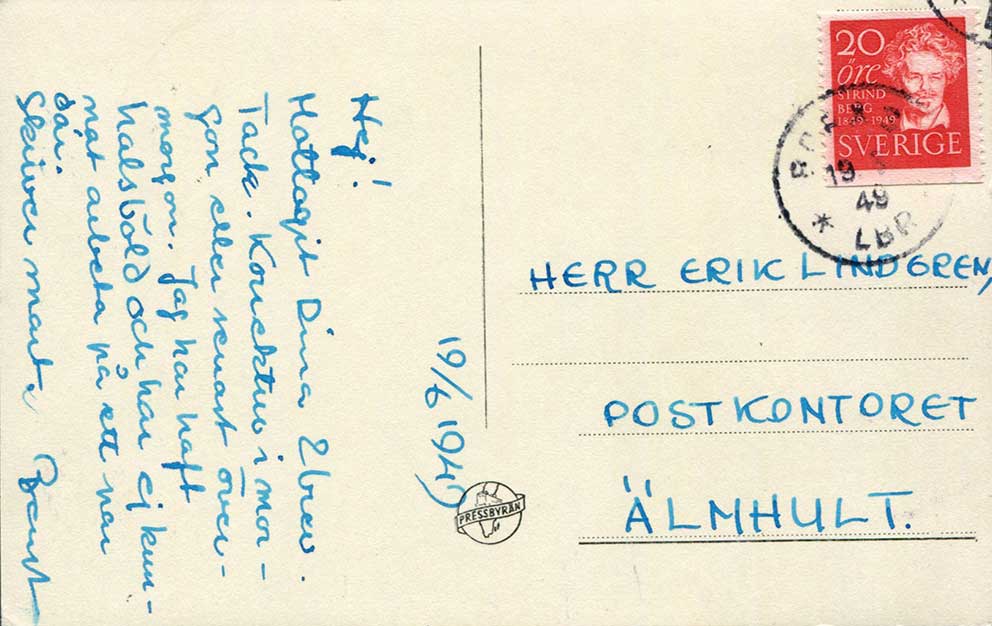 20
öre
STRIND
BERG
1849-1949
SVERIGE
19
49
* LBR
HERR ERIK LINDGREN,
POSTKONTORET
ÄLMHULT.
PRESSBYRÅN
19/6 1949
Hej!
Mottagit Dina 2 brev.
Tack. Korrektur i mor-
gon eller senast över-
morgon. Jag har haft
halsböld och har ej kun-
nat arbeta på ett par
dar.
Skriver snart. Bernt